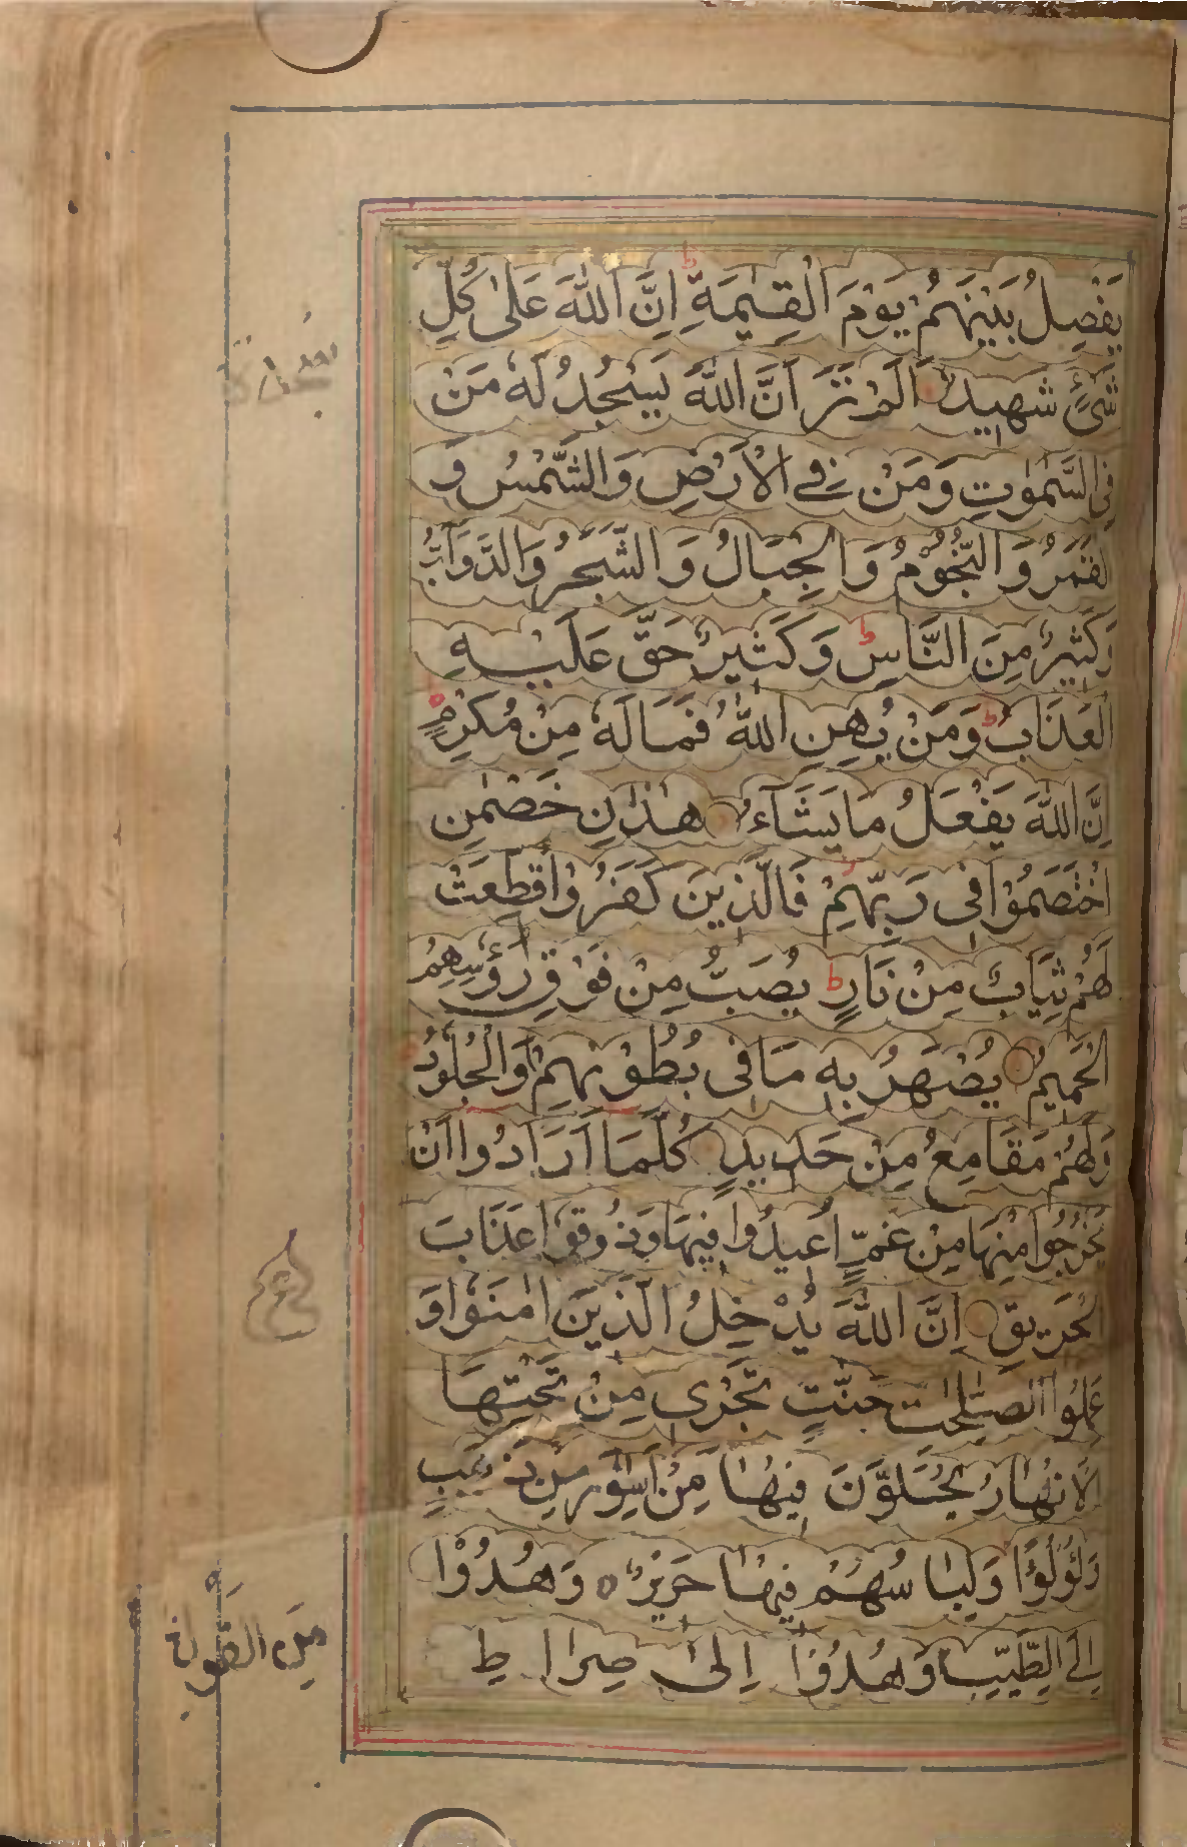 يَفْصِلُ بَيْنَهُمْ يَوْمَ الْقِيٰمَةِ ط اِنَّ اللّٰهَ عَلىٰ كُلِّ
شَیْءٍ شَهِيدٌ اَلَمْ تَرَ اَنَّ اللّٰهَ يَسْجُدُ لَهٗ مَنْ
فِي السَّمٰوٰتِ وَمَنْ فِے الْاَرْضِ وَالشَّمْسُ وَ
لْقَمَرُ وَ النُّجُوْمُ وَالْجِبَالُ وَ الشَّجَرُ وَالدَّوَآبُّ
وَكَثِيْرٌ مِنَ النَّاسِ ط وَكَثِيرٌ حَقَّ عَلَيْهِ
الْعَذَابُ ط وَمَنْ يُهِنِ اللّٰهُ فَمَا لَهٗ مِنْ مُكْرِمٍ
اِنَّ اللّٰهَ يَفْعَلُ مَا يَشَآءُ هٰذٰنِ خَصْمٰنِ
اخْتَصَمُوْا فِى رَبِّهِمْ فَالَّذِينَ كَفَرُوْا قُطِّعَتْ
لَهُمْ ثِيَابٌ مِنْ نَارٍ ط يُصَبُّ مِنْ فَوْقِ رُؤُسِهِمُ
الْحَمِيمُ يُصْهَرُ بِهٖ مَا فِى بُطُوْنِهِمْ وَالْجُلُوْدُ
وَلَهُمْ مَقَامِعُ مِنْ حَدِيدٍ كُلَّمَا اَرَادُوا اَنْ
يَخْرُجُوْا مِنْهَا مِنْ غَمٍّ اُعِيدُوا فِيْهَا وَذُوقُوْا عَذَابَ
الْحَرِيقِ اِنَّ اللّٰهَ يُدْخِلُ الَّذِينَ اٰمَنُوْا وَ
عَمِلُوا الصّٰلِحٰتِ جَنّٰتٍ تَجْرِى مِنْ تَحْتِهَا
لْاَنْهَارُ يُحَلَّوْنَ فِيْهَا مِنْ اَسَاوِرَ مِنْ ذَهَبٍ
وَلُؤْلُؤًا وَلِبَاسُهُمْ فِيْهَا حَرِيْرٌ ه وَهُدُوْا
اِلَے الطَّيِّبِ وَهُدُوْا اِلىٰ صِرَاطِ
مِنَ الْقَوْلِ